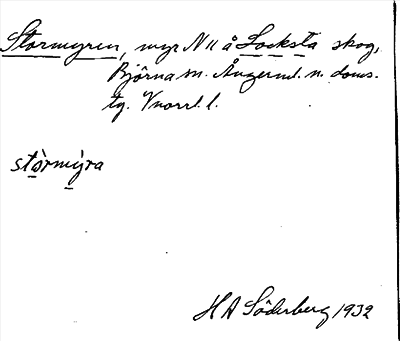 Stormyren, myr N 11 å Locksta skog,
Björna sn. Ångerml. n. doms.
tg. Vnorrl. l.
stòrmỳra
H A Söderberg 1932